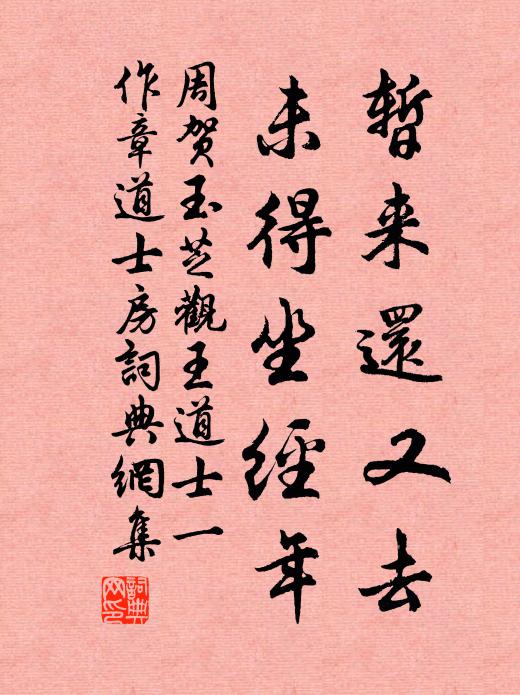 暫来還又去
未得坐經年
周贺玉芝觀王道士一
作章道士房詞典網集
詞典网印